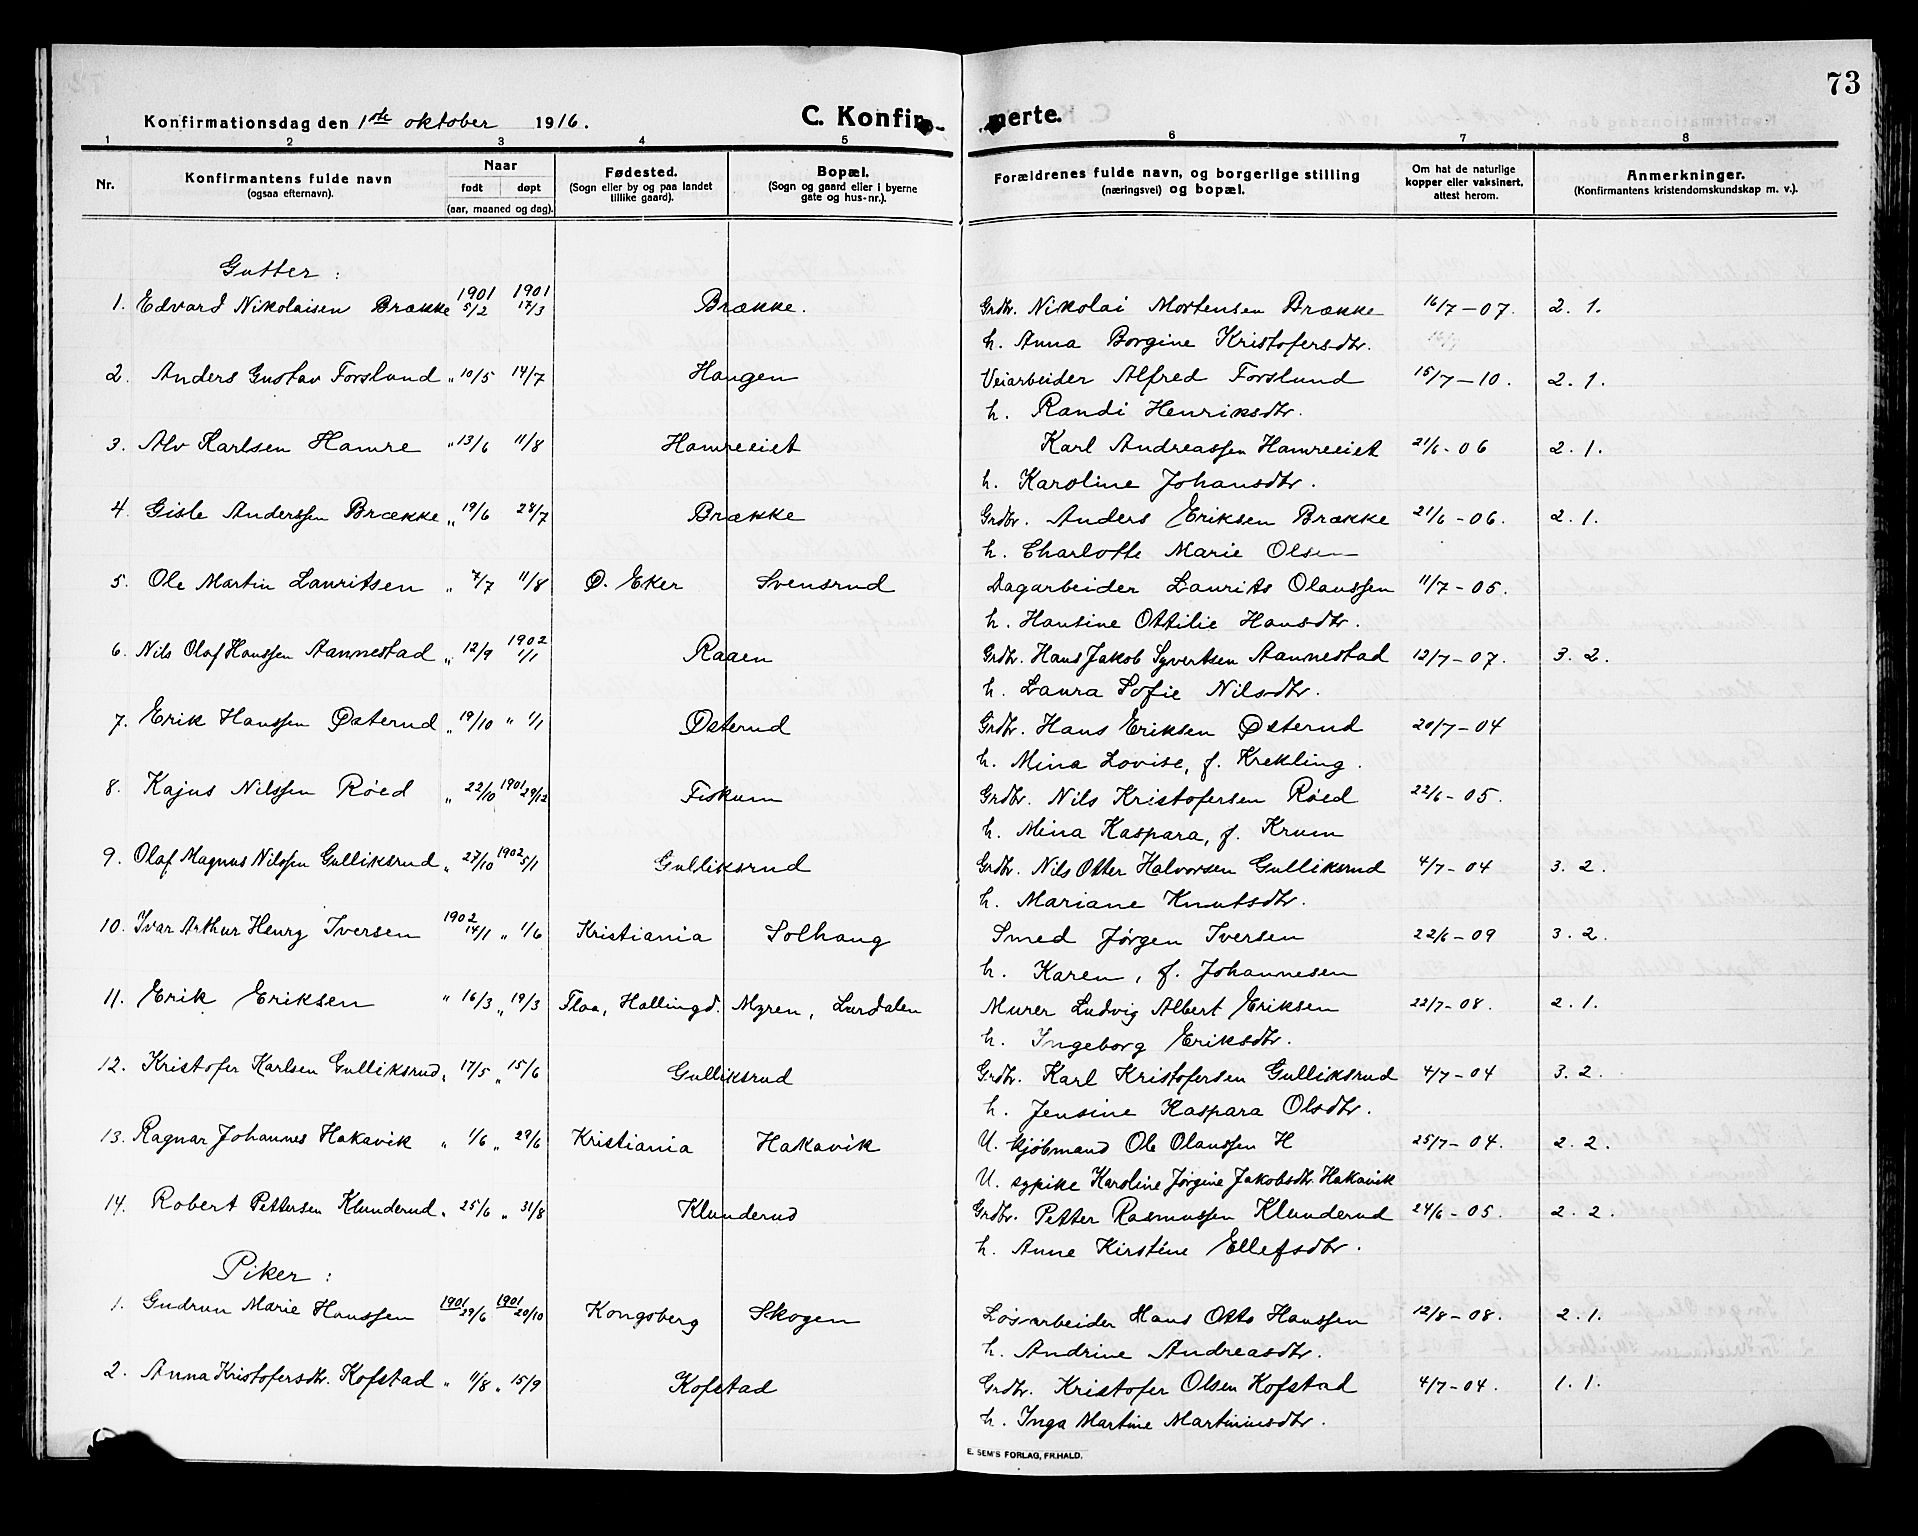 73
Konfirmationsdag den 1ste oktober 1916.
C. Konfirmerte.
1 2 3 4 5 6 7 8
Nr.
Konfirmantens fulde navn
(ogsaa efternavn).
Naar
født døpt
(aar, maaned og dag).
Fødested.
(Sogn eller by og paa landet
tillike gaard).
Bopæl.
(Sogn og gaard eller i byerne
gate og hus-nr.).
Forældrenes fulde navn, og borgerlige stilling
(næringsvei) og bopæl.
Om hat de naturlige
kopper eller vaksinert,
attest herom.
Anmerkninger.
(Konfirmantens kristendomskundskap m. v.).
Gutter:
1. Edvard Nikolaisen Brække 1901 5/2 1901 17/3 Brække. Grdbr. Nikolai Mortensen Brække 16/7-07. 2. 1.
h. Anna Borgine Kristofersdtr.
2. Anders Gustav Forslund " 10/5 14/7 Haugen Veiarbeider Alfred Forslund 15/7-10. 2. 1.
h. Randi Henriksdtr.
3. Alv Karlsen Hamre " 13/6 11/8 Hamreeiet Karl Andreassen Hamreeiet 21/6-06 2. 1.
h. Karoline Johansdtr.
4. Gisle Anderssen Brække " 19/6 28/7 Brække Grdbr. Anders Eriksen Brække 21/6-06. 2. 1.
h. Charlotte Marie Olsen
5. Ole Martin Lauritsen " 7/7 11/8 Ø. Eker Svensrud Dagarbeider Laurits Olaussen 11/7-05.
h. Hansine Ottilie Hansdtr.
6. Nils Olaf Hanssen Aannestad " 12/9 1902 1/1 Raaen Grdbr. Hans Jakob Syvertsen Aannestad 12/7-07. 3. 2.
h. Laura Sofie Nilsdtr.
7. Erik Hanssen Østerud " 19/10 " 1/1 Østerud Grdbr. Hans Eriksen Østerud 20/7-04
h. Mina Lovise, f. Krekling.
8. Kajus Nilssen Røed " 22/10 1901 29/12 Fiskum Grdbr. Nils Kristofersen Røed 22/6-05.
h. Mina Kaspara, f. Krum
9. Olaf Magnus Nilssen Gulliksrud " 27/10 1902 5/1 Gulliksrud Grdbr. Nils Otter Halvorsen Gulliksrud 4/7-04 3. 2.
h. Mariane Knutsdtr.
10. Ivar Arthur Henry Iversen 1902 14/1 " 1/6 Kristiania Solhaug Smed Jørgen Iversen 22/6-09 3. 2.
h. Karen, f. Johannesen
11. Erik Eriksen " 16/3 " 19/3 Flaa, Hallingd. Myren, Lurdalen Murer Ludvig Albert Eriksen 22/7-08. 2. 1.
h. Ingeborg Eriksdtr.
12. Kristofer Karlsen Gulliksrud " 17/5 " 15/6 Gulliksrud Grdbr. Karl Kristofersen Gulliksrud 4/7-04 3. 2.
h. Jensine Kaspara Olsdtr.
13. Ragnar Johannes Hakavik " 1/6 " 29/6 Kristiania Hakavik U. kjøbmand Ole Olaussen H 25/7-04. 2. 2.
U. sypike Karoline Jørgine Jakobsdtr. Hakavik
14. Robert Pettersen Klunderud " 25/6 " 31/8 Klunderud Grdbr. Petter Rasmussen Klunderud 24/6-05. 2. 2.
h. Anne Kirstine Ellefsdtr.
Piker:
1. Gudrun Marie Hanssen 1901 29/6 1901 20/10 Kongsberg Skogen Løsarbeider Hans Otto Hanssen 12/8-08. 2. 1.
h. Andrine Andreasdtr.
2. Anna Kristofersdtr. Kofstad " 11/8 " 15/9 Kofstad Grdbr. Kristofer Olsen Kofstad 4/7-04. 1. 1.
h. Inga Martine Martiniusdtr.
E. SEM'S FORLAG, FR.HALD.